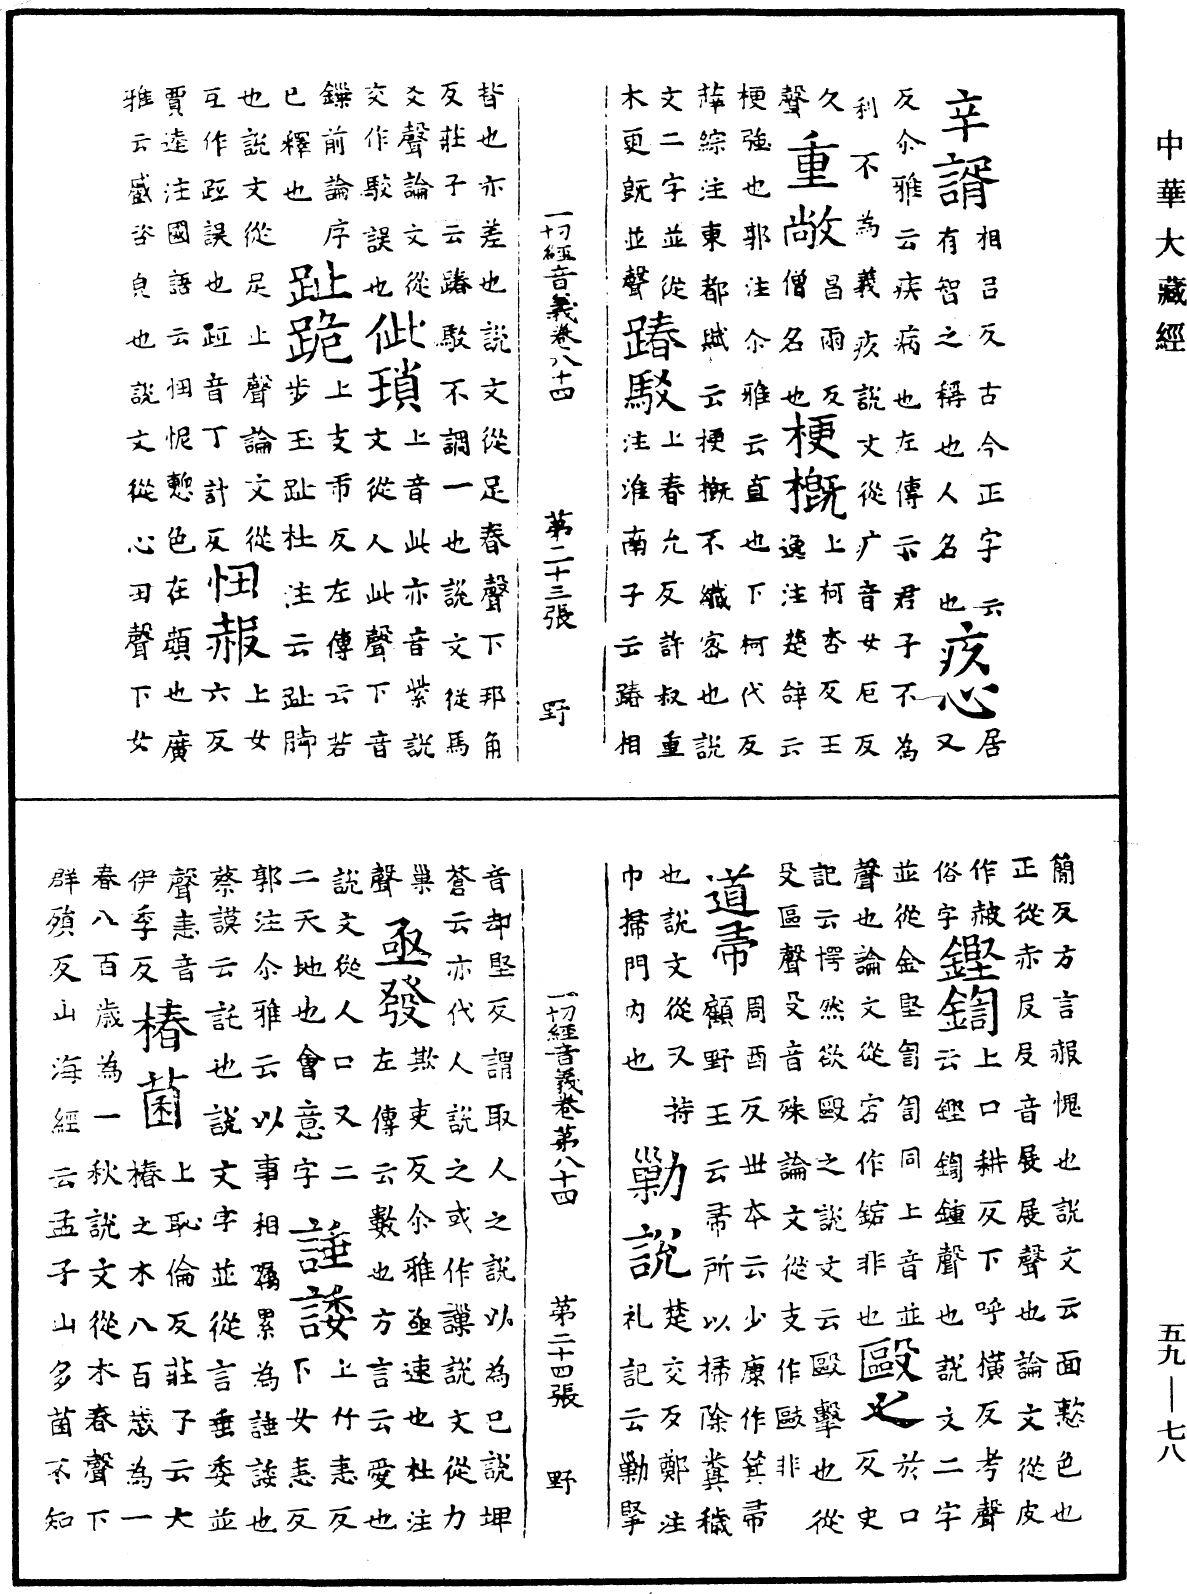 中華大藏經
辛諝相吕反古今正字云
有智之稱也人名也疚心居又
反尒雅云疾病也左傳云君子不為
利不為義疚説文從疒音女厄反
久聲重敞昌雨反
僧名也梗概上柯杏反王
逸注楚辭云
梗強也郭注尒雅云直也下柯代反
薛綜注東都賦云梗概不纖密也説
文二字並從
木更旣並聲踳駁上春允反許叔重
注淮南子云踳相
一切經音義卷八十四 第二十三張 野
皆也亦差也説文從足春聲下邦角
反莊子云踳駁不調一也説文從馬
爻聲論文從
交作駮誤也佌璅上音此亦音紫説
文從人此聲下音
鏁前論序
已釋也趾跪上支市反左傳云若
步玉趾杜注云趾脚
也説文從足止聲論文從
互作䟡誤也䟡音丁計反忸赧上女
六反
賈逵注國語云忸怩慙色在顏也廣
雅云盛咨皃也説文從心丑聲下女
簡反方言赧愧也説文云面慙色也
正從赤𠬝𠬝音展展聲也論文從皮
作赧
俗字鏗鍧上口耕反下呼橫反考聲
云鏗鍧鍾聲也説文二字
並從金堅訇訇同上音並
聲也論文從宕作鍧非也毆之於口
反史
記云愕然欲毆之説文云毆擊也從
殳區聲殳音殊論文從支作敺非
道帚周酉反世本云少康作箕帚
顧野王云帚所以掃除糞穢
也説文從又持
巾掃門内也勦説楚交反鄭注
礼記云勦擥
一切經音義卷第八十四 第二十四張 野
音却堅反謂取人之説以為已説埤
蒼云亦代人説之或作謨説文從力
巢
聲亟發欺吏反尒雅亟速也杜注
左傳云數也方言云愛也
説文從人口又二
二天地也會意字諈諉上竹恚反
下女恚反
郭注尒雅云以事相屬累為諈諉也
蔡謨云託也説文字並從言垂委並
聲恚音
伊季反椿菌上恥倫反莊子云大
椿之木八百歲為一
春八百歲為一秋説文從木春聲下
群殞反山海經云孟子山多菌不知
五九—七八